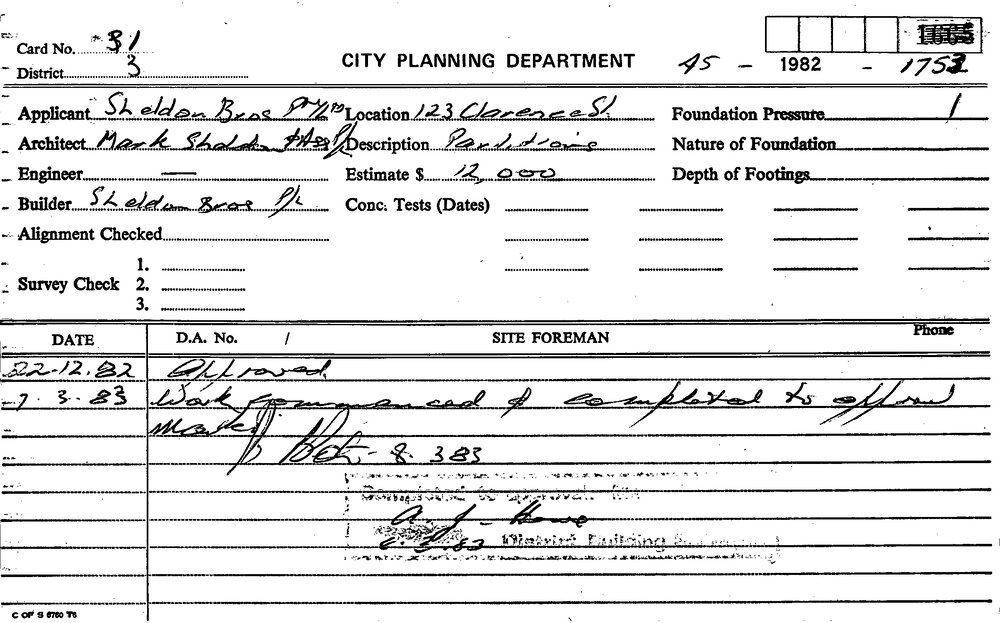 Card No. 31
District 3
CITY PLANNING DEPARTMENT 45 - 1982 - 1753
Applicant Sheldon Bros Pty Ltd Location 123 Clarence St. Foundation Pressure /
Architect Mark Sheldon & Ass P/L Description Partitions Nature of Foundation
Engineer — Estimate $ 12,000 Depth of Footings
Builder Sheldon Bros P/L Conc. Tests (Dates)
Alignment Checked
1.
Survey Check 2.
3.
DATE D.A. No. / SITE FOREMAN Phone
22-12.82 Approved
7.3.83 Work commenced & completed to approval
8.3.83
Completed to approval.
District Building
C OF S 6760 T6